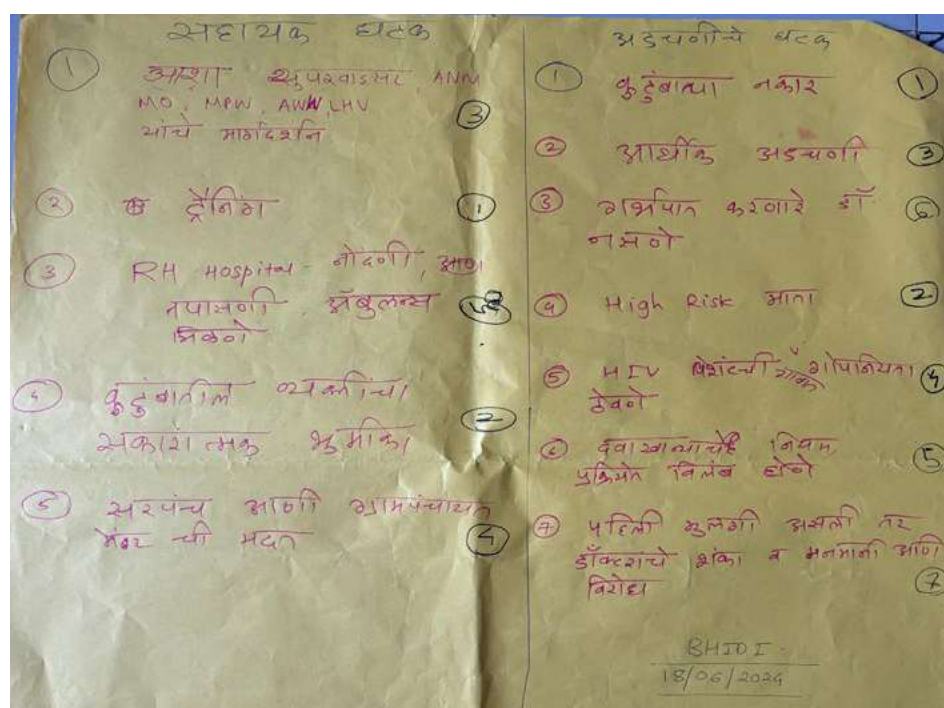 सहायक घटक
① आशा सुपरवाइसर, ANM ③
MO, MPW, AWW, LHV
यांचे मार्गदर्शन
② ट्रैनिंग ①
③ RH Hospital - नोदणी, आण
तपासणी अॅबुलन्स
मिळणे
४ कुटुंबातील व्यक्तींचा ②
सकारात्मक भुमिका
⑤ सरपंच आणी ग्रामपंचायत
मेंबर ची मदत ④
अडचणीचे घटक
① कुटुंबाचा नकार ①
② आर्थीक अडचणी ③
③ गर्भपात करणारे डॉ ⑥
नसणे
④ High Risk माता ②
⑤ HIV पेशंटची गोपनियता ④
ठेवणे
⑥ दवाखान्याचेह नियम ⑤
प्रक्रियेत विलंब होणे
⑦ पहिली मुलगी असली तर
डॉक्टरांचे शंका व मनमानी आणि
विरोध ⑦
BHIDI
18/06/2024